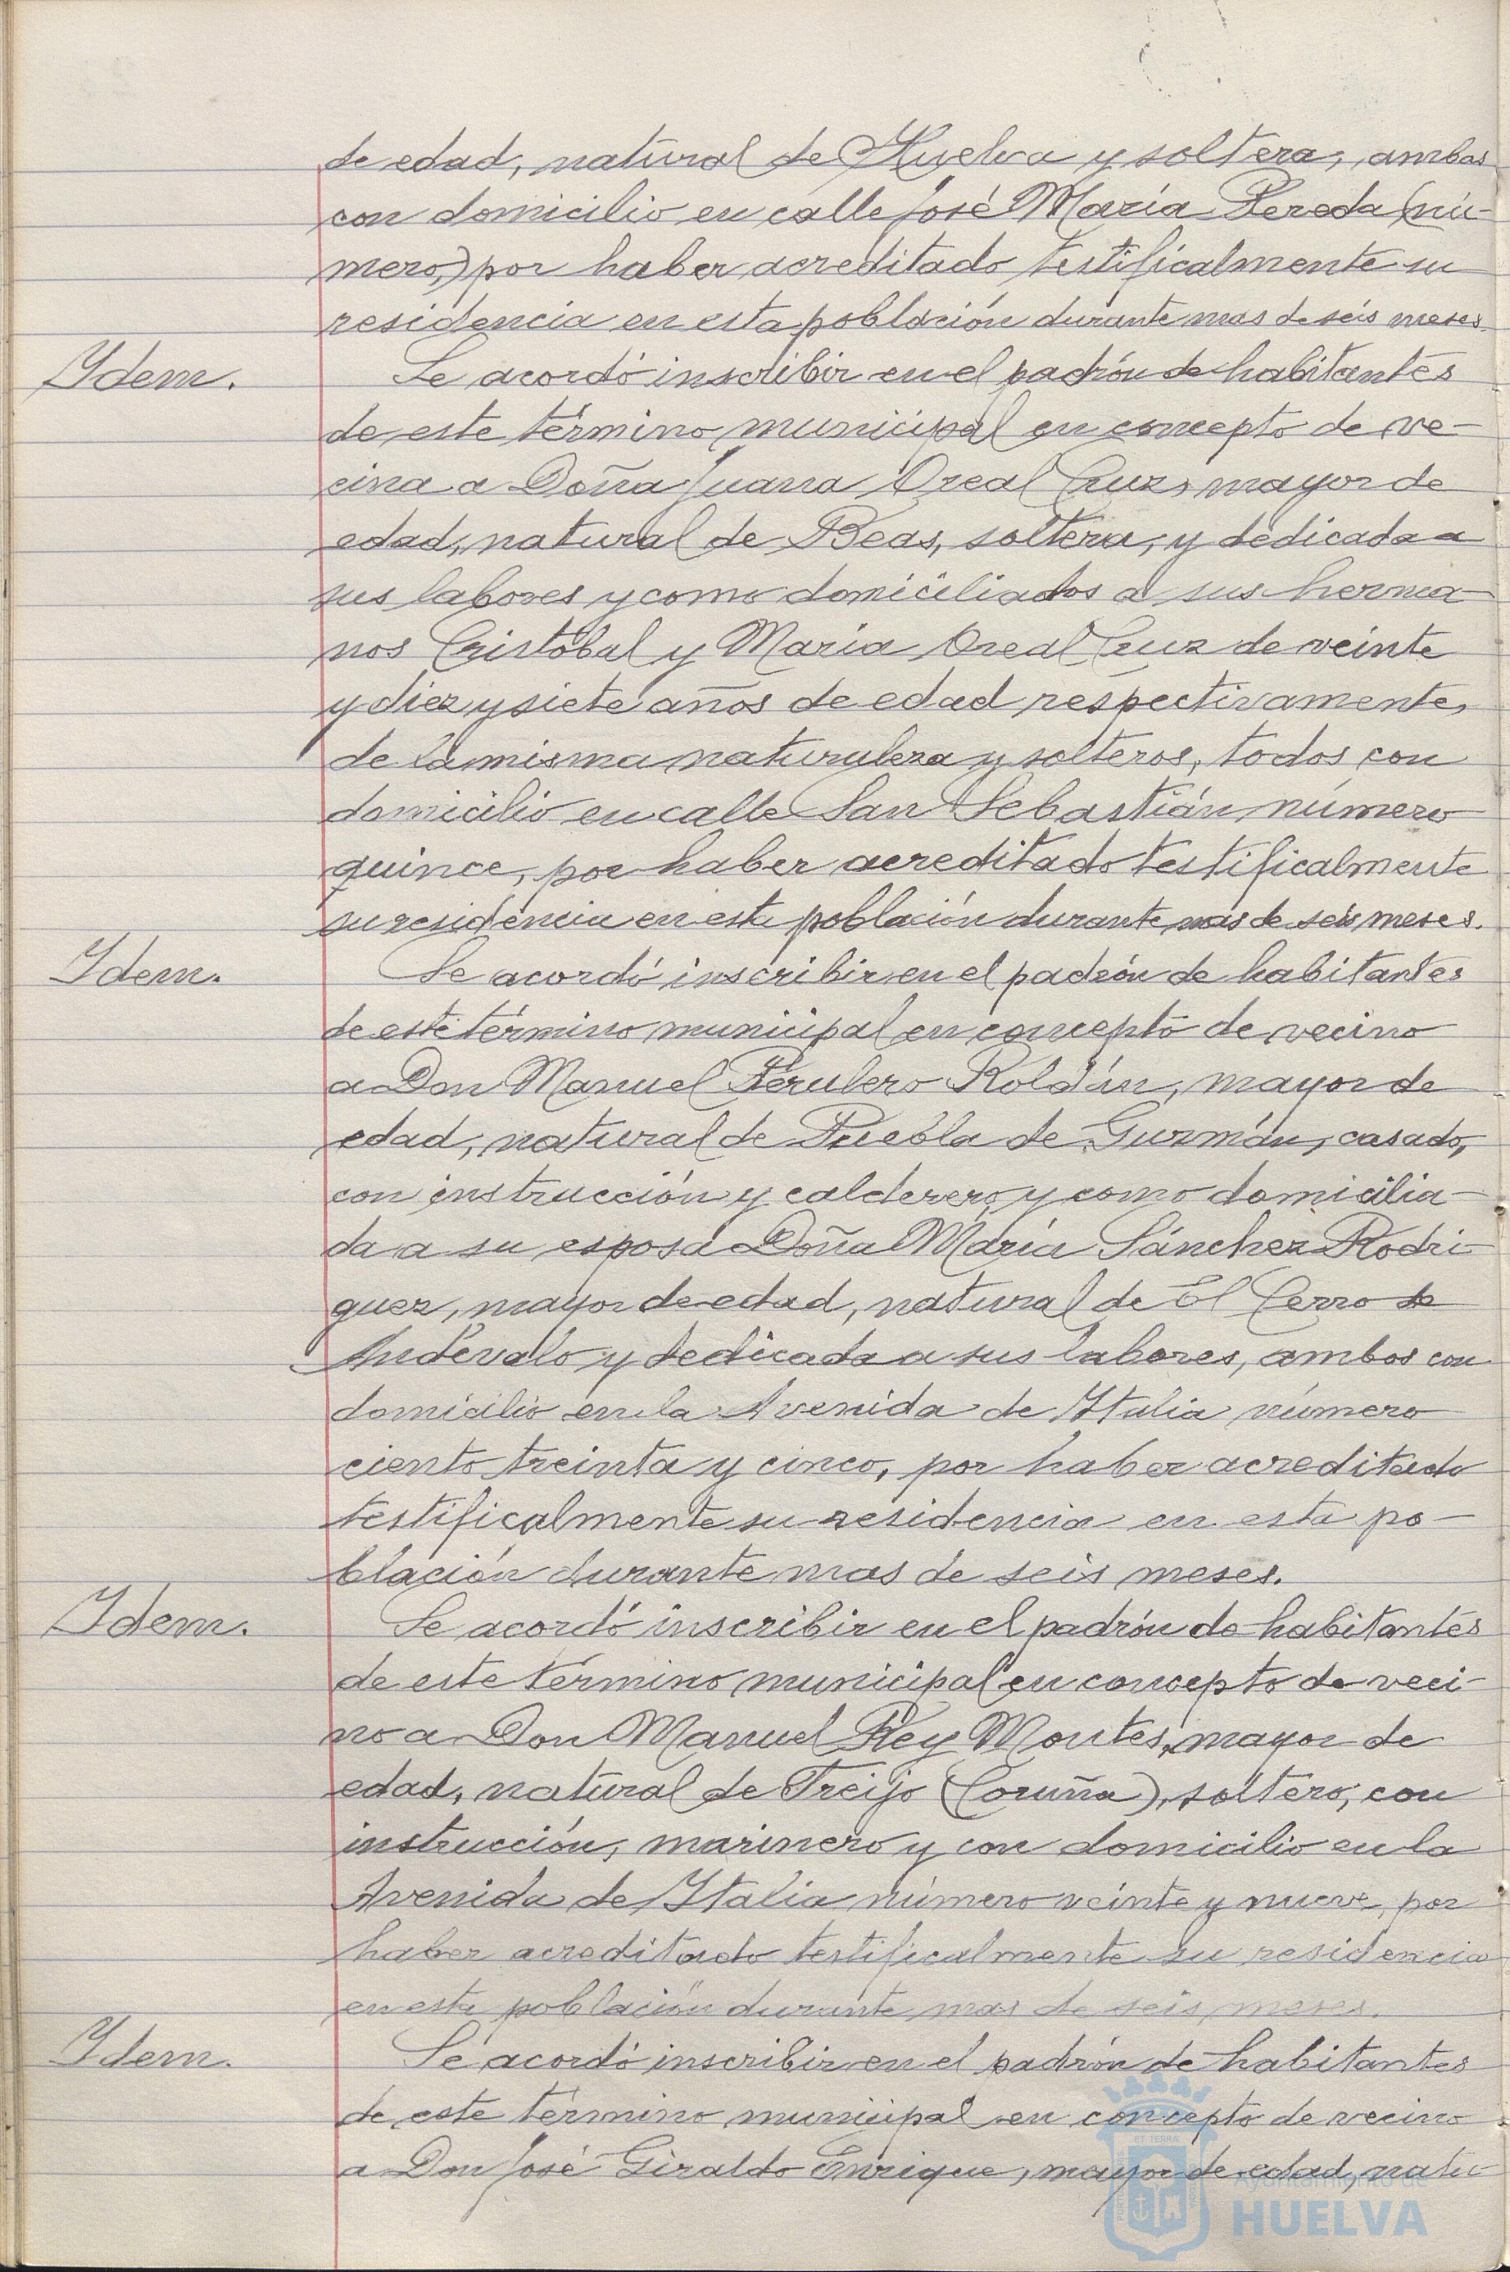 de edad, natural de Huelva y soltera, ambas
con domicilio en calle José María Pereda (nú-
mero,) por haber acreditado testificalmente su
residencia en esta población durante mas de seis meses.
Ydem.
Se acordó inscribir en el padrón de habitantes
de este término municipal en concepto de ve-
cina a Doña Juana Oreal Cruz, mayor de
edad, natural de Beas, soltera, y dedicada a
sus labores y como domiciliados a sus herma-
nos Cristóbal y María Oreal Cruz de veinte
y diez y siete años de edad respectivamente,
de la misma naturaleza y solteros, todos con
domicilio en calle San Sebastián número
quince, por haber acreditado testificalmente
su residencia en esta población durante mas de seis meses.
Ydem.
Se acordó inscribir en el padrón de habitantes
de este término municipal en concepto de vecino
a Don Manuel Perulero Roldán, mayor de
edad, natural de Puebla de Guzmán, casado,
con instrucción y calderero, y como domicilia-
da a su esposa Doña María Sánchez Rodri-
guez, mayor de edad, natural de El Cerro de
Andévalo y dedicada a sus labores, ambos con
domicilio en la Avenida de Italia número
ciento treinta y cinco, por haber acreditado
testificalmente su residencia en esta po-
blación durante mas de seis meses.
Ydem.
Se acordó inscribir en el padrón de habitantes
de este término municipal en concepto de veci-
no a Don Manuel Rey Montes, mayor de
edad, natural de Treijo (Coruña), soltero, con
instrucción, marinero y con domicilio en la
Avenida de Italia número veinte y nueve, por
haber acreditado testificalmente su residencia
en esta población durante mas de seis meses.
Ydem.
Se acordó inscribir en el padrón de habitantes
de este término municipal en concepto de vecino
a Don José Giraldo Enrique, mayor de edad, natu-
Ayuntamiento de
HUELVA